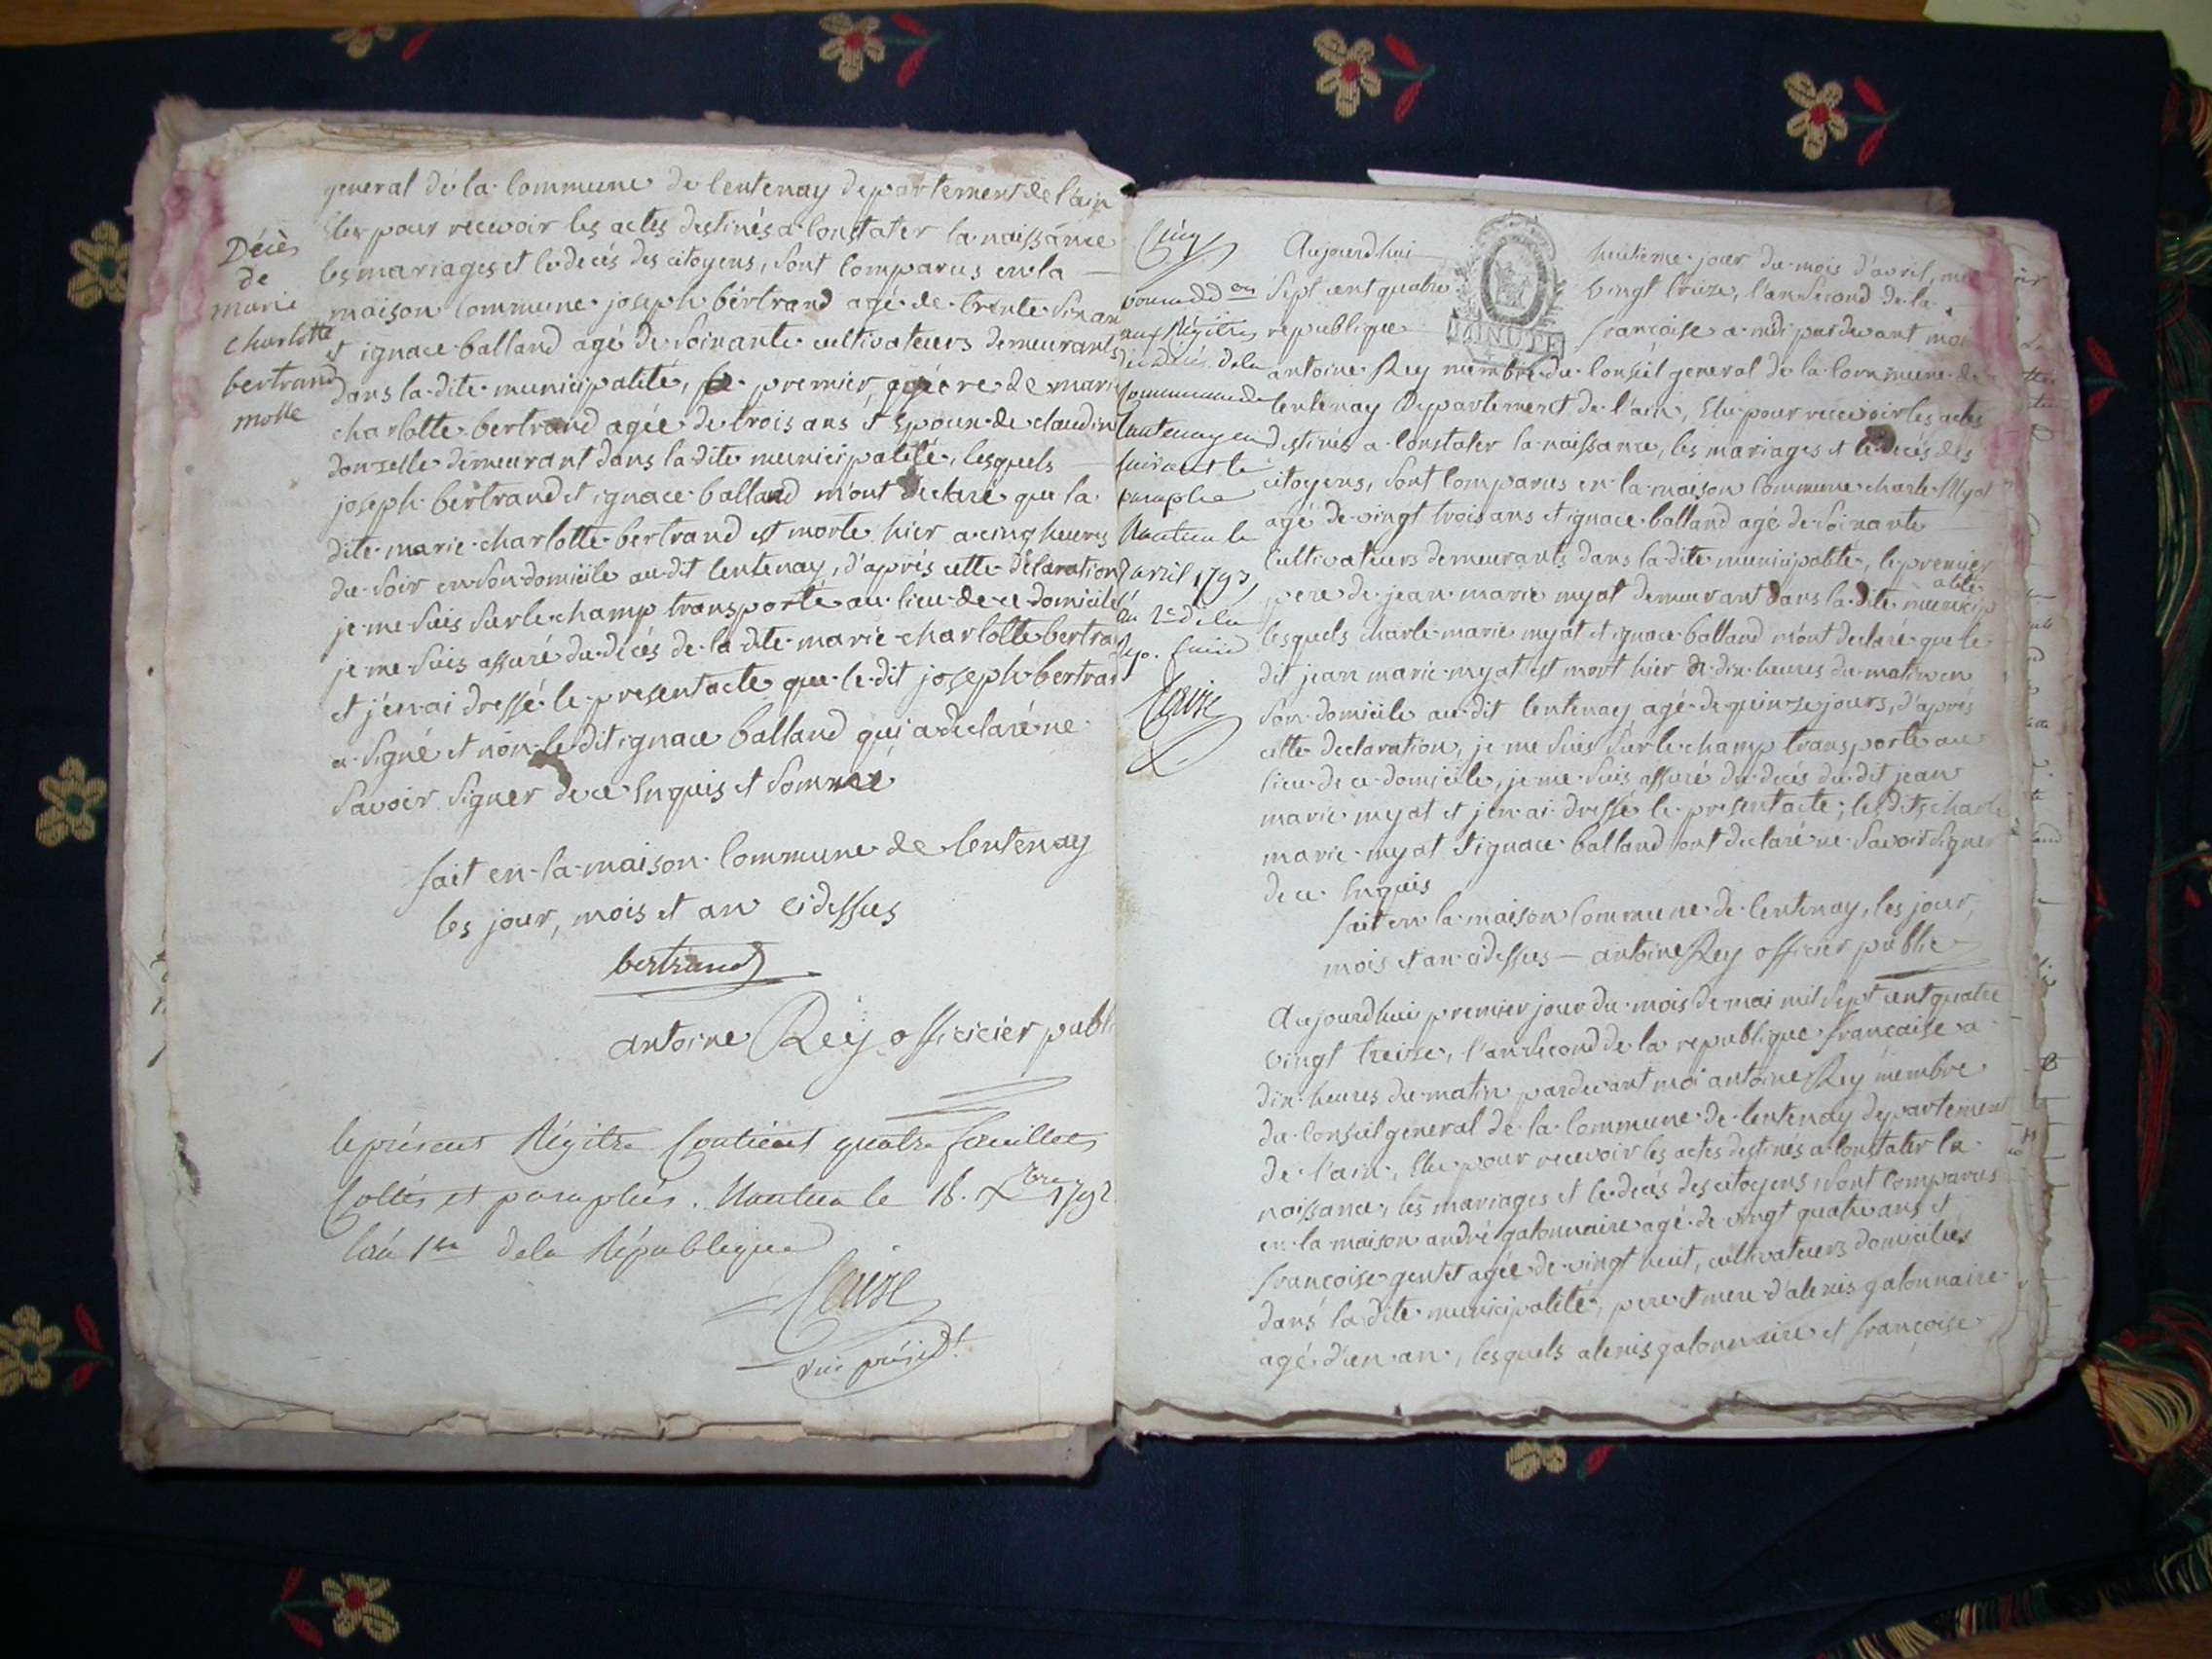 general de la Commune de lentenay departement de l'ain
Elu pour recevoir les actes destinés a Constater la naissance
les mariages et le decés des citoyens, sont Comparus en la
maison Commune joseph bertrand agé de trente
et ignace balland agé de soixante cultivateurs demeurants
dans la dite municipalité, le premier, de marie
charlotte bertrand agée de trois ans et de claudine
donzelle demeurant dans la dite municipalité, lesquels
joseph bertrand et ignace balland m'ont declaré que la
dite marie charlotte bertrand est morte hier a cinq heures
du soir en son domicile au dit lentenay, d'aprés cette déclaration
je me suis sur le champ transporté au lieu de ce domicile
je me suis assuré du decés de la dite marie charlotte bertra
et j'en ai dressé le present acte que le dit joseph bertra
a signé et non le dit ignace balland qui a declaré ne
savoir signer de ce Enquis et Sommé
fait en la maison Commune de lentenay
les jour, mois et an cidessus
bertrand
antoine Rey officicier publ
Décès
de
marie
charlotte
bertrand
le présent Régitre Contient quatre feuillets
Cottés et paraphés. Nantua le 18. Xbre 1792
l'an 1er de la République
vice présidt.
Cinq
aux Régitres
de décés de la
Commune de
Lantenay en
suivant le
paraphe
Nantua le
avril 1793
l'an 2e de la
Rép.
Aujourdhui huitieme jour du mois d'avril, mil
Sept cent quatre vingt treize, l'an Second de la
republique françoise a midi pardevant moi
MINUTE
antoine Rey membre du Conseil general de la Commune de
lentenay Departement de l'ain, Elu pour recevoir les actes
destinés a Constater la naissance, les mariages et le decés des
citoyens, sont Comparus en la maison Commune charle Myat
agé de vingt trois ans et ignace balland agé de soixante
Cultivateurs demeurants dans la dite municipalité, le premier
pere de jean marie myat demeurant dans la dite municipalité
lesquels charle marie myat et ignace balland m'ont declaré que le
dit jean marie myat est mort hier a dix heures du matin en
son domicile au dit lentenay agé de quinze jours, d'aprés
cette declaration, je me suis sur le champ transporté au
lieu de ce domicile, je me suis assuré du decés du dit jean
marie myat et j'en ai dressé le present acte; les dits charle
marie myat et ignace balland ont declaré ne savoir signer
de ce Enquis
fait en la maison Commune de lentenay, les jour,
mois et an cidessus — antoine Rey officier public
Aujourdhui premier jour du mois de mai mil Sept cent quatre
vingt treize, l'an Second de la republique françaisse a
dix heures du matin pardevant moi antoine Rey membre
du Conseil general de la Commune de lentenay departement
de l'ain, Elu pour recevoir les actes destinés a Constater la
naissance, les mariages et le decés des citoyens sont Comparus
en la maison andré galonnaire agé de vingt quatre ans et
françoise gentet agée de vingt huit, cultivateurs domiciliés
dans la dite municipalité, pere et mere d'alexis galonnaire
agé d'un an, lesquels alexis galonnaire et françoise